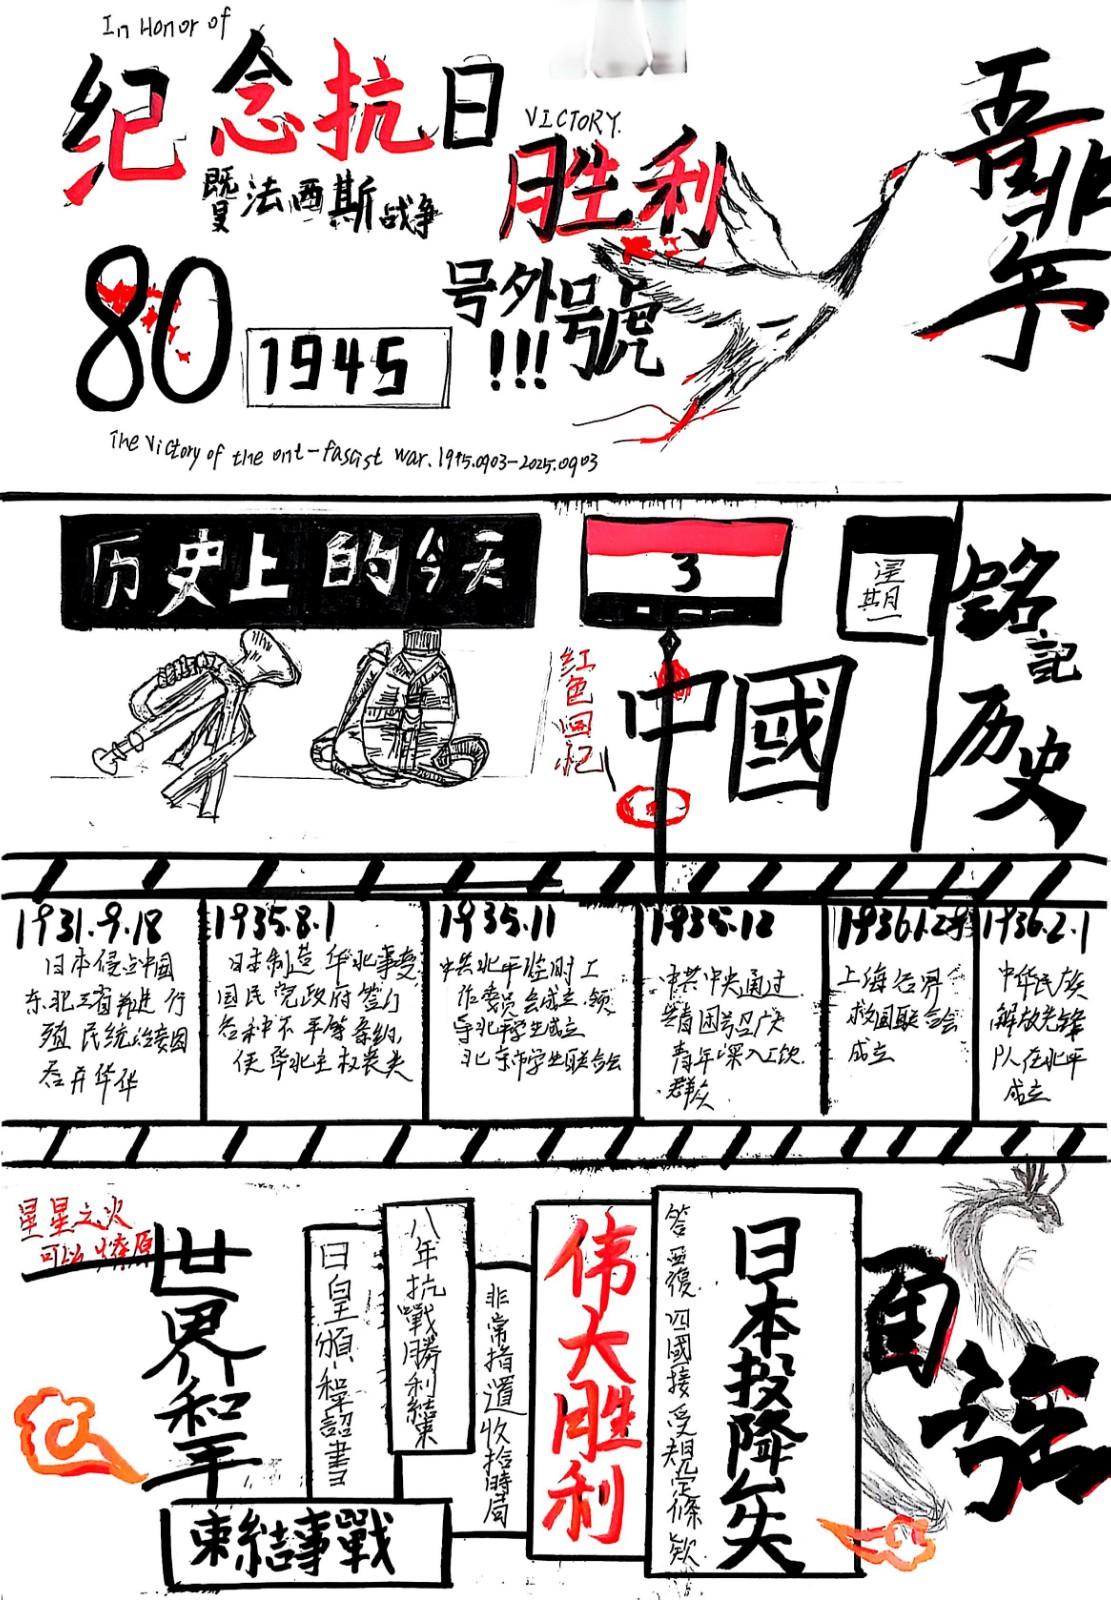 In Honor of
纪念抗日
VICTORY.
胜利
暨法西斯战争
80
1945
号外号號
!!!
吾非
年
The victory of the ant-fascist war.1945.0903-2025.0903
历史上的今天
3
星期一
铭記
历史
红色回忆
中國
1931.9.18
日本侵占中国
东北三省并进行
殖民统治妄图
吞并华华
1935.8.1
日本制造华北事变
国民党政府签订
各种不平等条约,
使华北主权丧失
1935.11
中共北平临时工
作委员会成立.领
导北平学生成立
北京市学生联合会
1935.12
中共中央通过
广大
青年深入工农
群众
1936.1.28
上海各界
救国联合会
成立
1936.2.1
中华民族
解放先锋
队在北平
成立
星星之火
可以燎原
世界和平
日皇頒和平詔書
八年抗戰勝利結束
非常措置收拾時局
伟大胜利
簽覆四國接受規定條款
日本投降矣
自强
束結事戰